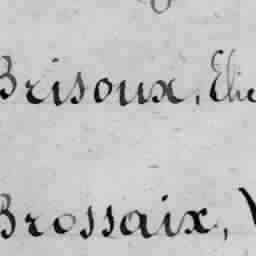 Brisoux, Elie
Brossaix, V